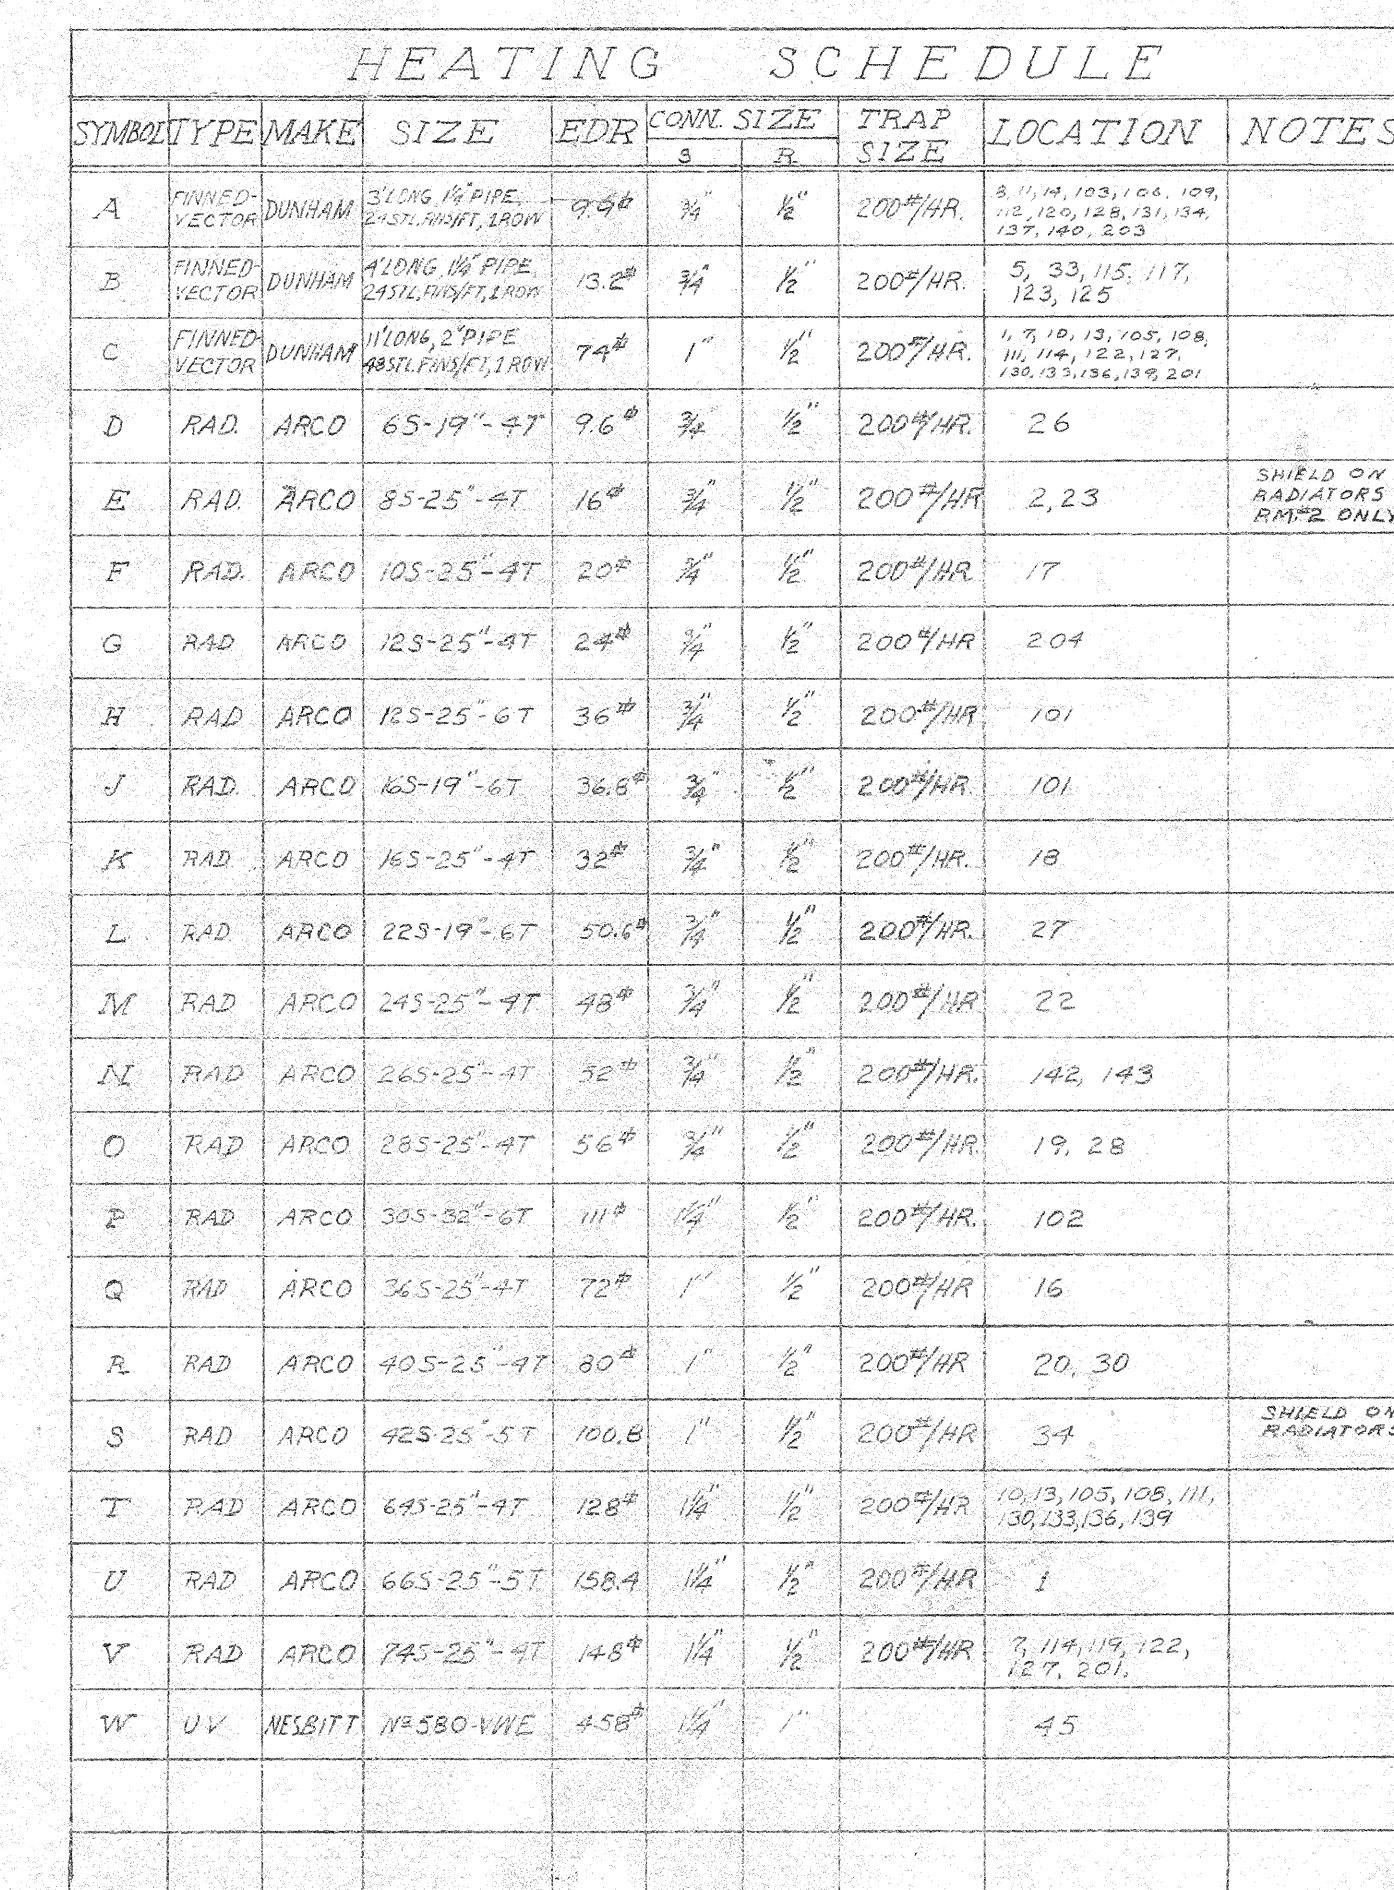 HEATING SCHEDULE
SYMBOL TYPE MAKE SIZE EDR CONN. SIZE TRAP SIZE LOCATION NOTES
S R
A FINNED-VECTOR DUNHAM 3'LONG, 1¼" PIPE, 24 STL.FINS/FT, 1 ROW 9.9⌀ ¾" ½" 200#/HR. 3, 11, 14, 103, 106, 109,
112, 120, 128, 131, 134,
137, 140, 203
B FINNED-VECTOR DUNHAM 4'LONG, 1¼" PIPE, 24 STL.FINS/FT, 1 ROW 13.2⌀ ¾" ½" 200#/HR. 5, 33, 115, 117,
123, 125
C FINNED-VECTOR DUNHAM 11'LONG, 2" PIPE 48 STL.FINS/FT, 1 ROW 74⌀ 1" ½" 200#/HR. 1, 7, 10, 13, 105, 108,
111, 114, 122, 127,
130, 133, 136, 139, 201
D RAD. ARCO 6S-19"-4T 9.6⌀ ¾ ½" 200#/HR. 26
E RAD. ARCO 8S-25"-4T 16⌀ ¾" ½" 200#/HR 2, 23 SHIELD ON
RADIATORS
RM.#2 ONLY
F RAD. ARCO 10S-25"-4T 20⌀ ¾" ½" 200#/HR 17
G RAD ARCO 12S-25"-4T 24⌀ ¾" ½" 200#/HR 204
H RAD ARCO 12S-25"-6T 36⌀ ¾" ½" 200#/HR 101
J RAD. ARCO 16S-19"-6T 36.8⌀ ¾" ½" 200#/HR. 101
K RAD. ARCO 16S-25"-4T 32⌀ ¾" ½" 200#/HR. 18
L RAD. ARCO 22S-19"-6T 50.6⌀ ¾" ½" 200#/HR. 27
M RAD ARCO 24S-25"-4T 48⌀ ¾" ½" 200#/HR 22
N RAD ARCO 26S-25"-4T 52⌀ ¾" ½" 200#/HR. 142, 143
O RAD ARCO 28S-25"-4T 56⌀ ¾" ½" 200#/HR. 19, 28
P RAD ARCO 30S-32"-6T 111⌀ 1¼" ½" 200#/HR. 102
Q RAD ARCO 36S-25"-4T 72⌀ 1" ½" 200#/HR 16
R RAD ARCO 40S-25"-4T 80⌀ 1" ½" 200#/HR 20, 30
S RAD ARCO 42S-25"-5T 100.8 1" ½" 200#/HR 34 SHIELD ON
RADIATORS
T RAD ARCO 64S-25"-4T 128⌀ 1¼" ½" 200#/HR 10, 13, 105, 108, 111,
130, 133, 136, 139
U RAD ARCO 66S-25"-5T 158.4 1¼" ½" 200#/HR 1
V RAD ARCO 74S-25"-4T 148⌀ 1¼" ½" 200#/HR 7, 114, 119, 122,
127, 201,
W UV NESBITT Nº580-VWE 458⌀ 1¼" 1" 45